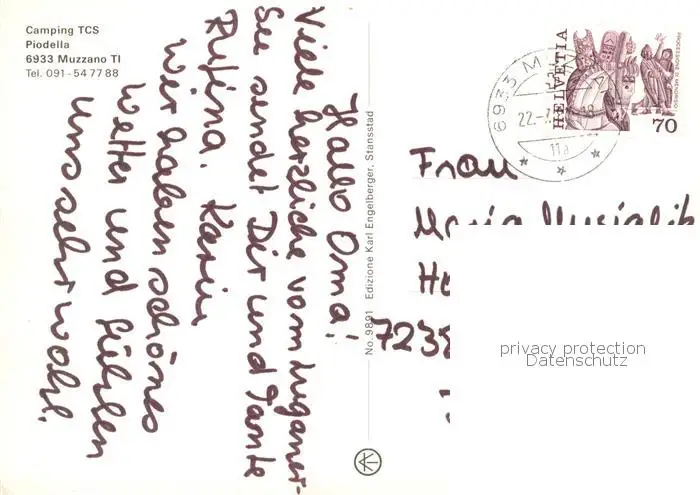 Camping TCS
Piodella
6933 Muzzano TI
Tel. 091 - 54 77 88
Hallo Oma!
Viele herzliche vom Luganer-
See sendet Dir und Tante
Rufina. Karin
Wir haben schönes
Wetter und fühlen
uns sehr wohl.
No. 9891 Edizione Karl Engelberger, Stansstad
6933 M
22.-7.
11a
HELVETIA
PROCESSIONE DI MENDRISIO
70
Frau
Maria
7238
privacy protection
Datenschutz